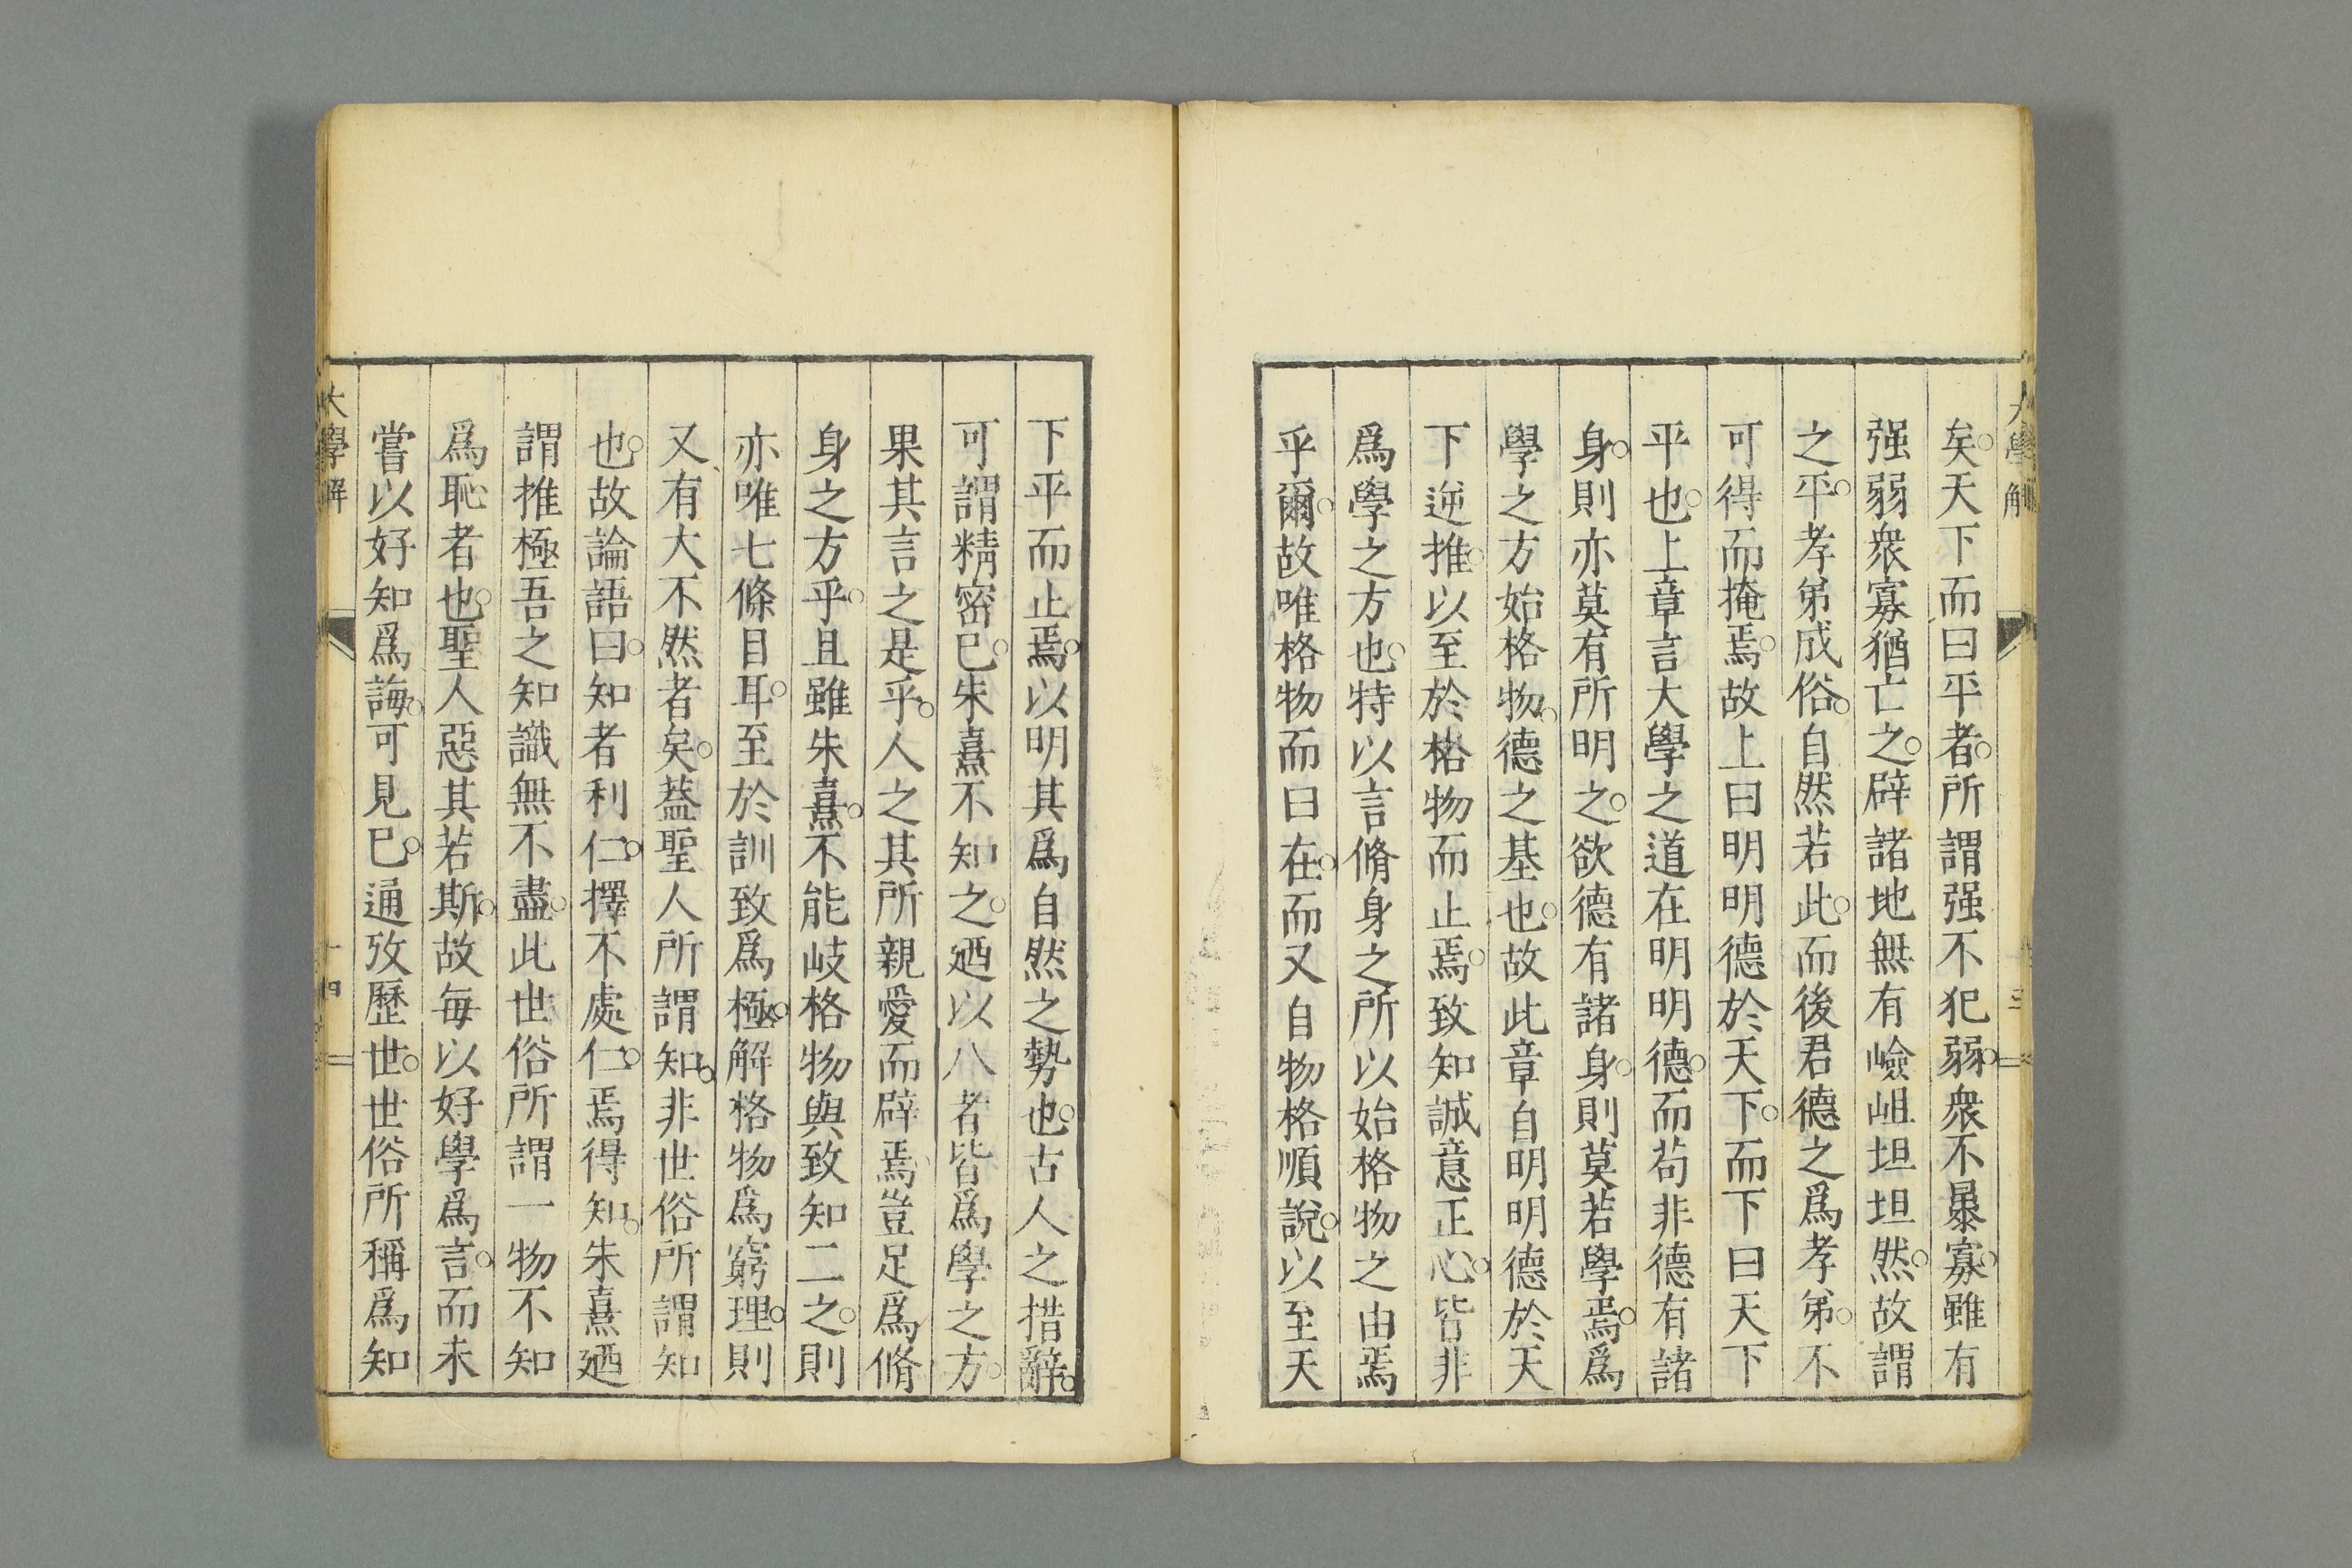 矣。天下而曰平者。所謂强不犯弱。衆不暴寡。雖有
强弱衆寡猶亡之。辟諸地無有嶮岨坦坦然。故謂
之平。孝弟成俗。自然若此。而後君德之爲孝弟。不
可得而掩焉。故上曰明明德於天下。而下曰天下
平也。上章言大學之道在明明德。而苟非德有諸
身。則亦莫有所明之。欲德有諸身。則莫若學焉。爲
學之方始格物。德之基也。故此章自明明德於天
下逆推。以至於格物而止焉。致知誠意正心。皆非
爲學之方也。特以言脩身之所以始格物之由焉
乎爾。故唯格物而曰在。而又自物格順說。以至天
大學解
下平而止焉。以明其爲自然之勢也。古人之措辭。
可謂精密已。朱熹不知之。廼以八者皆爲學之方。
果其言之是乎。人之其所親愛而辟焉。豈足爲脩
身之方乎。且雖朱熹。不能岐格物與致知二之。則
亦唯七條目耳。至於訓致爲極。解格物爲窮理。則
又有大不然者矣。葢聖人所謂知。非世俗所謂知
也。故論語曰。知者利仁。擇不處仁。焉得知。朱熹廼
謂推極吾之知識無不盡。此世俗所謂一物不知
爲恥者也。聖人惡其若斯。故每以好學爲言。而未
嘗以好知爲誨。可見已。通攷歷世。世俗所稱爲知
大學解
十四